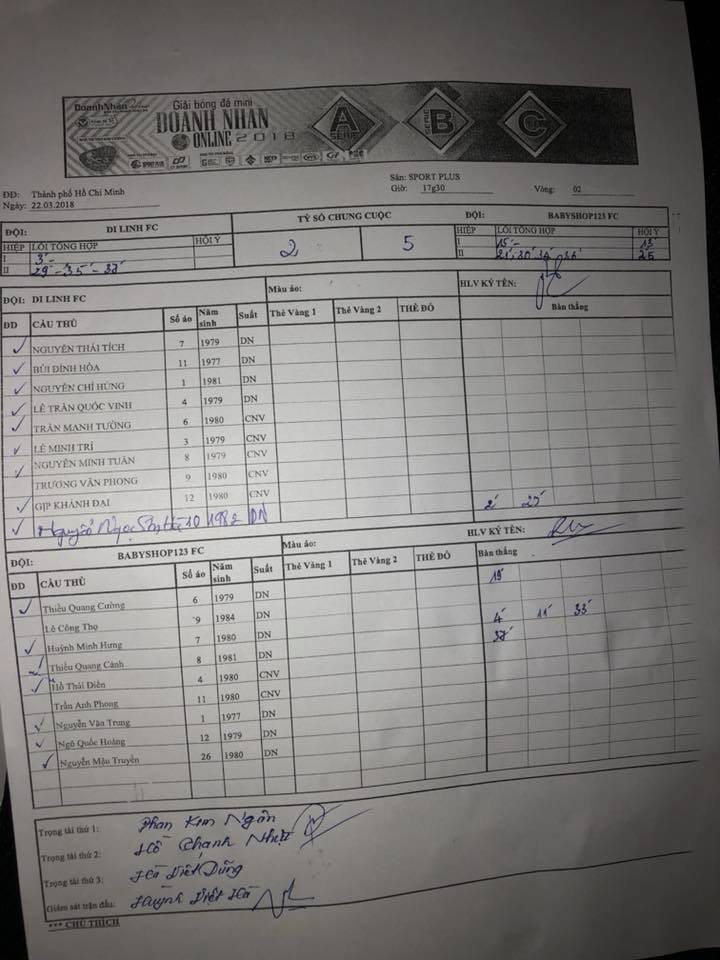 DoanhNhan
Giải bóng đá mini
DOANH NHAN
ONLINE 2018
SERIE A
SERIE B
C
SPORT PLUS
Sân: SPORT PLUS
ĐĐ: Thành phố Hồ Chí Minh
Giờ: 17g30 Vòng: 02
Ngày: 22.03.2018
ĐỘI: DI LINH FC TỶ SỐ CHUNG CUỘC ĐỘI: BABYSHOP123 FC
HIỆP LỖI TỔNG HỢP HỘI Ý 2 5 HIỆP LỖI TỔNG HỢP HỘI Ý
I 3'- I 15'- 13'
II 29'-35'-38' II 25
ĐỘI: DI LINH FC Màu áo: HLV KÝ TÊN:
ĐD CẦU THỦ Số áo Năm sinh Suất Thẻ Vàng 1 Thẻ Vàng 2 THẺ ĐỎ Bàn thắng
✓ NGUYỄN THÁI TÍCH 7 1979 DN
✓ BÙI ĐÌNH HÒA 11 1977 DN
✓ NGUYỄN CHÍ HÙNG 1 1981 DN
✓ LÊ TRẦN QUỐC VINH 4 1979 DN
✓ TRẦN MẠNH TƯỜNG 6 1980 CNV
✓ LÊ MINH TRÍ 3 1979 CNV
✓ NGUYỄN MINH TUẤN 8 1979 CNV
TRƯƠNG VĂN PHONG 9 1980 CNV
✓ GỊP KHÁNH ĐẠI 12 1980 CNV 2' 25'
✓ Nguyễn Ngọc 10 1982 DN
ĐỘI: BABYSHOP123 FC Màu áo: HLV KÝ TÊN:
ĐD CẦU THỦ Số áo Năm sinh Suất Thẻ Vàng 1 Thẻ Vàng 2 THẺ ĐỎ Bàn thắng
✓ Thiều Quang Cường 6 1979 DN 19'
Lê Công Thọ 9 1984 DN
✓ Huỳnh Minh Hưng 7 1980 DN 4' 11' 33'
✓ Thiều Quang Cảnh 8 1981 DN 38'
✓ Hồ Thái Điền 4 1980 CNV
Trần Anh Phong 11 1980 CNV
✓ Nguyễn Văn Trung 1 1977 DN
✓ Ngô Quốc Hoàng 12 1979 DN
✓ Nguyễn Mậu Truyền 26 1980 DN
Trọng tài thứ 1: Phan Kim Ngân
Trọng tài thứ 2: Hồ Chanh Nhựt
Trọng tài thứ 3: Hà Việt Dũng
Giám sát trận đấu: Huỳnh Việt Hà
*** CHÚ THÍCH